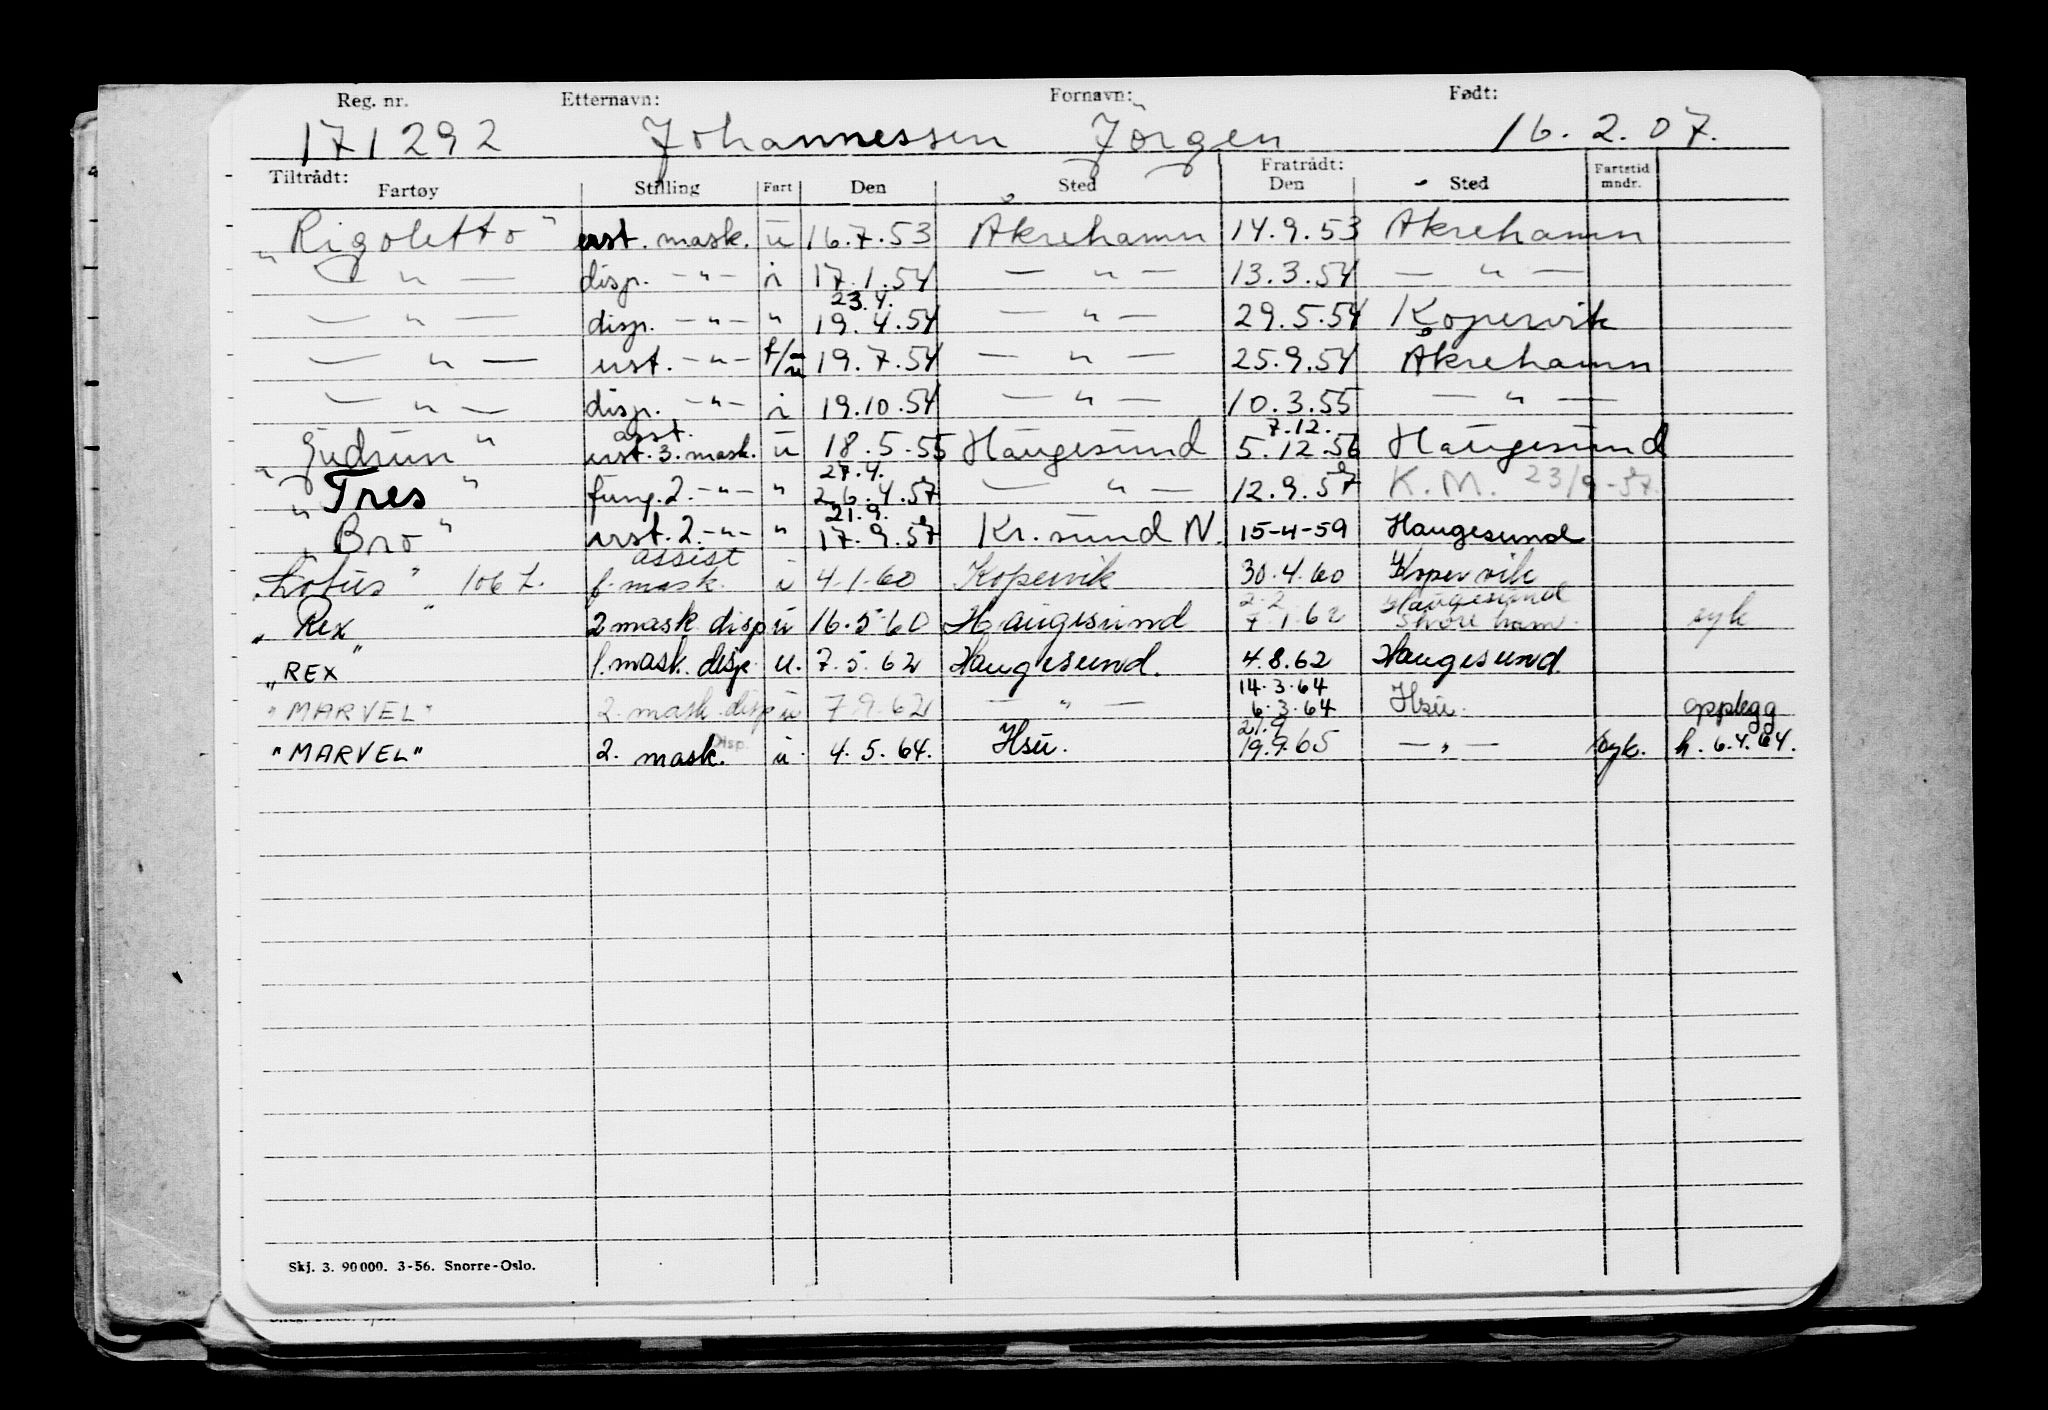 Reg. nr. Etternavn: Fornavn: Født:
171292 Johannessen Jörgen 16.2.07.
Tiltrådt: Fratrådt:
Fartøy Stilling Fart Den Sted Den Sted Fartstid mndr.
"Rigoletto" mask. u 16.7.53 Åkrehamn 14.9.53 Åkrehamn
— " — disp. —"— i 17.1.54 — " — 13.3.54 — " —
23.4.
— " — disp. —"— " 19.4.54 — " — 29.5.54 Kopervik
— " — —"— 19.7.54 — " — 25.9.54 Åkrehamn
— " — disp. —"— i 19.10.54 — " — 10.3.55 — " —
asst. 7.12.
"Gudrun" 3. mask. u 18.5.55 Haugesund 5.12.56 Haugesund
27.4.
"Tres" fung. 2. —"— " 26.4.57 — " — 12.9.57 K.M. 23/9-57.
21.9.
"Bro" 2. —"— " 17.9.57 Kr.sund N. 15-4-59 Haugesund
assist
"Lotus" 106 L. 1. mask. u 4.1.60 Kopervik 30.4.60 Kopervik
2.2 Haugesund
"Rex" 2 mask disp u 16.5.60 Haugesund 7.1.62 syk
"REX" 1. mask. disp. u. 7.5.62 Haugesund. 4.8.62 Haugesund.
14.3.64
"MARVEL" 2. mask. disp u 7.9.62 — " — 6.3.64 Hsu. opplegg
Disp. 21.9
"MARVEL" 2. mask. u. 4.5.64. Hsu. 19.9.65 — " — syk. h. 6.4.64.
Skj. 3. 90000. 3-56. Snorre-Oslo.